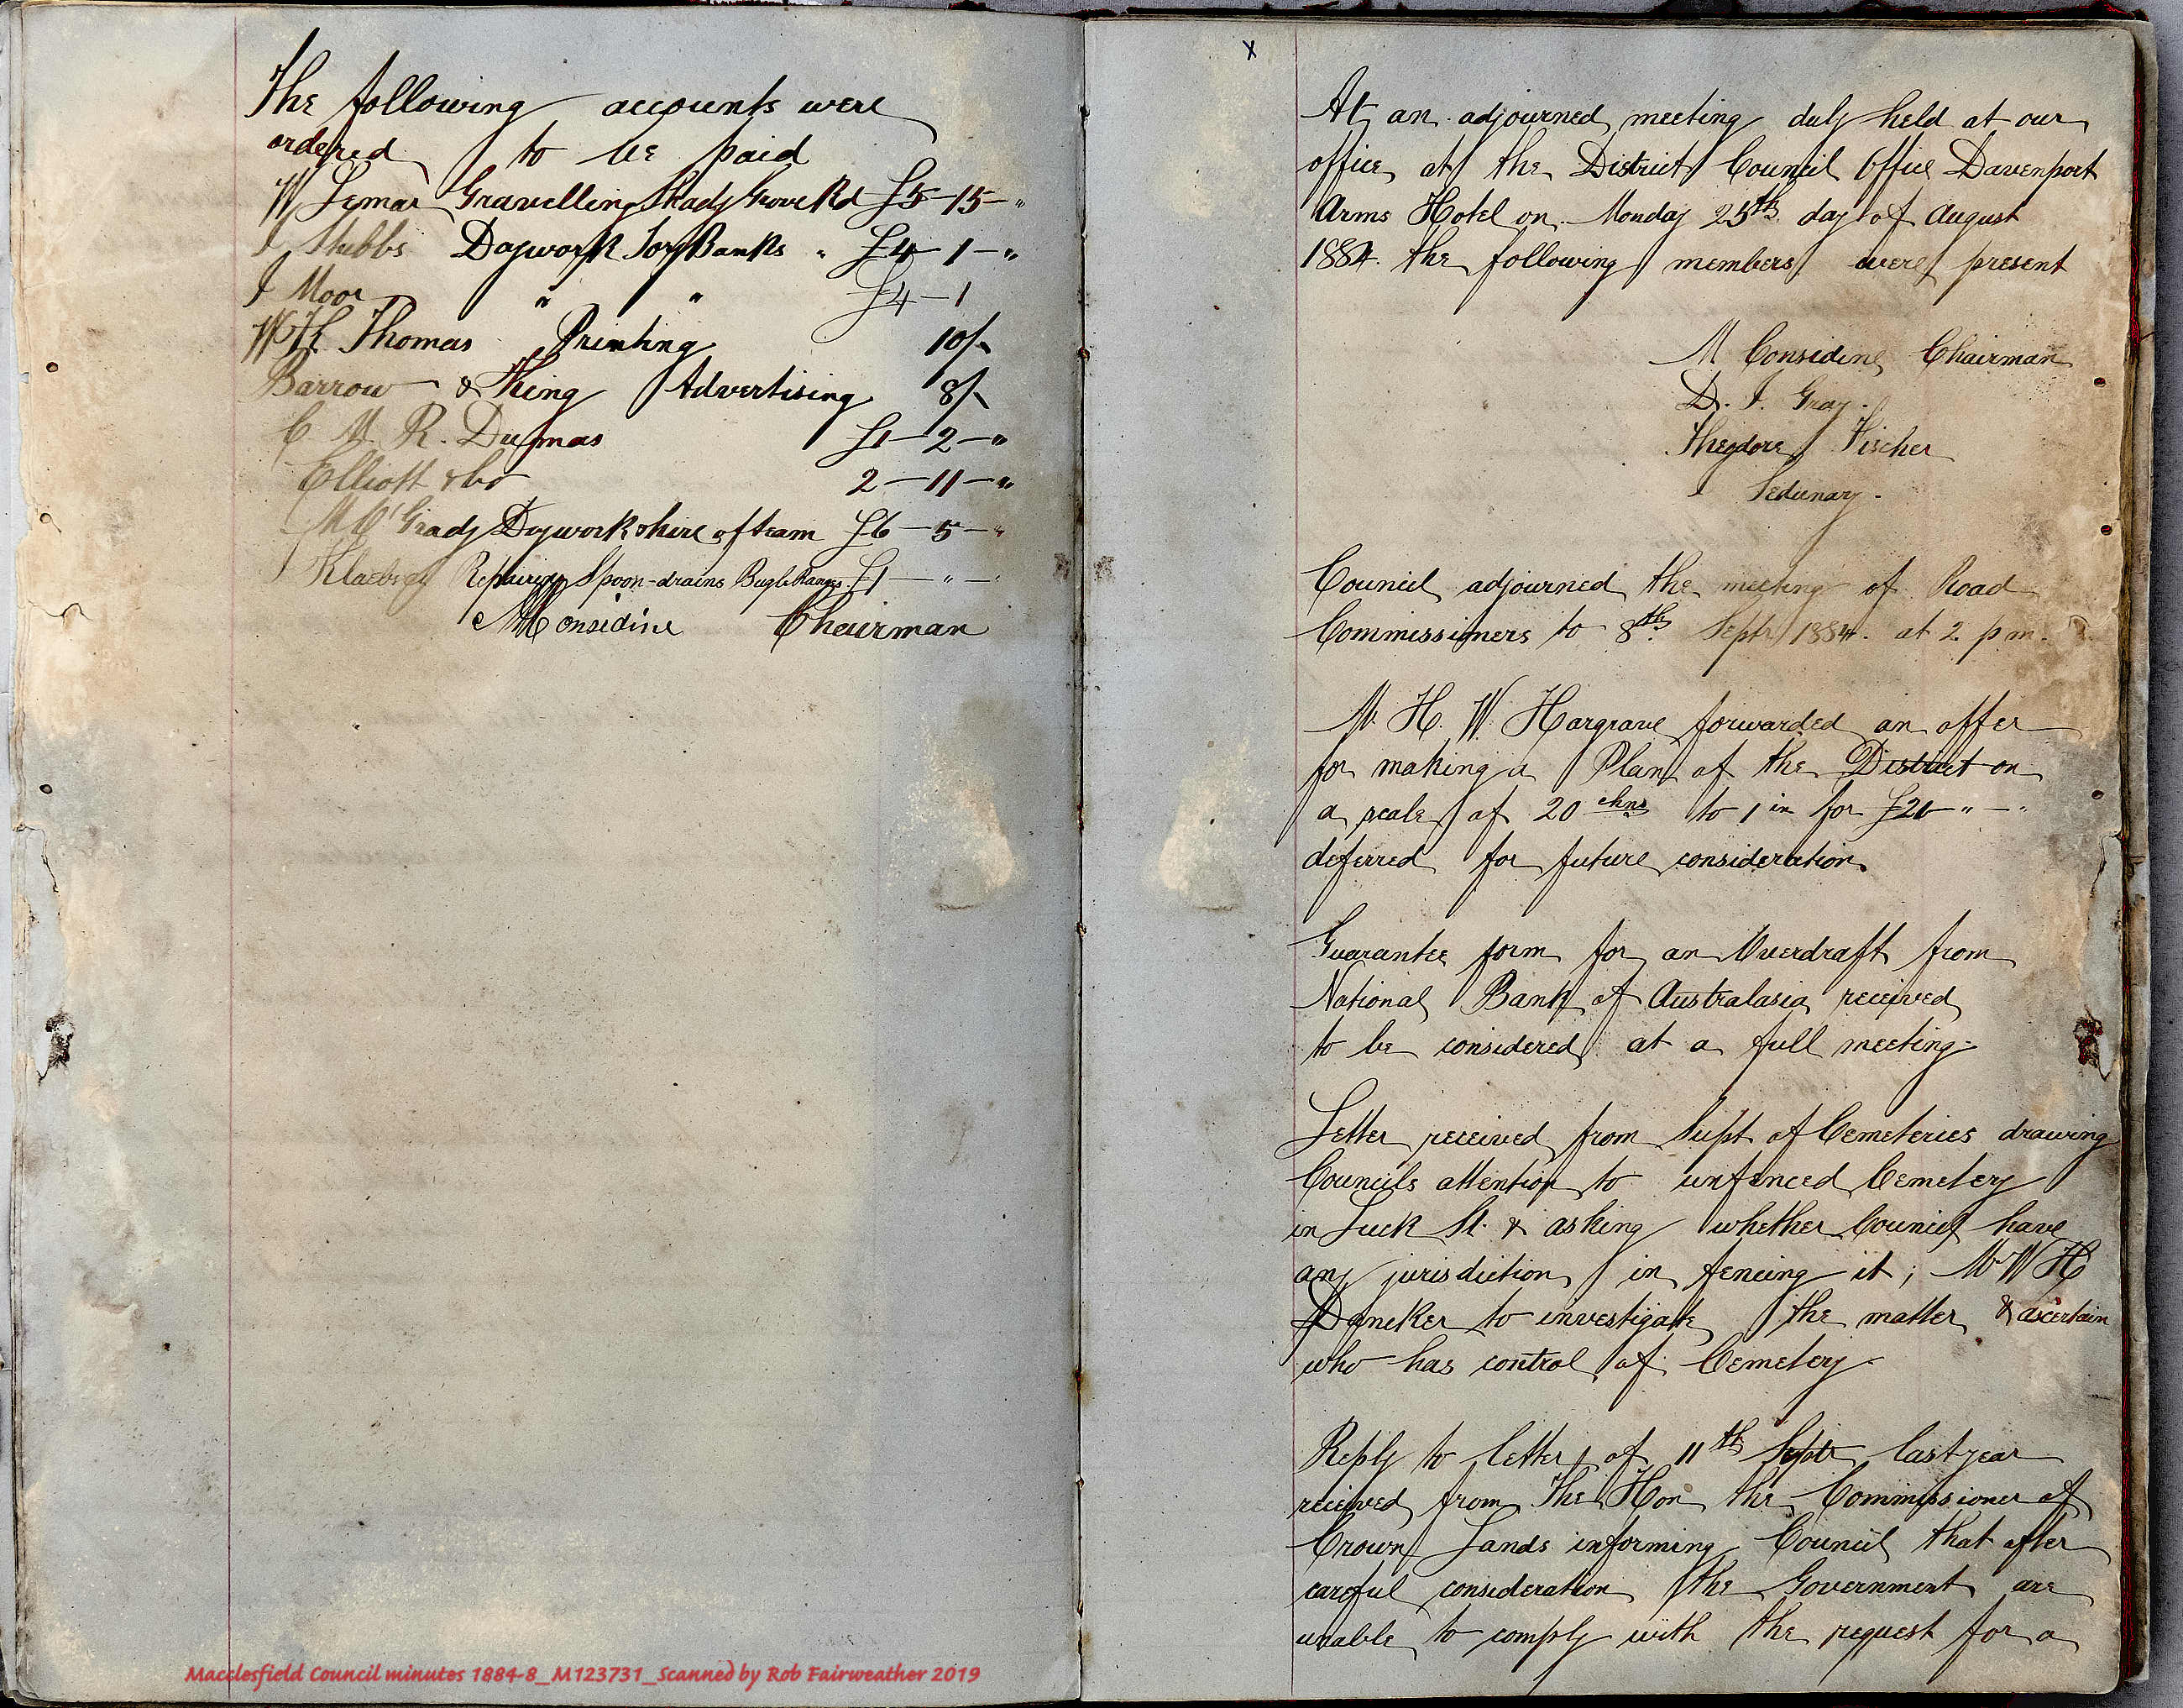 The following accounts were
ordered to be paid
W Lemar Gravelling Shady Grove Rd £5-15-"
J Stubbs Daywork Tory Banks " £4-1-"
J Moor " " £4-1
W H Thomas Printing 10/-
Barrow & King Advertising 8/-
C. M. R. Dumas £1-2-"
Elliott & Co 2-11-"
M McGrady Daywork & hire of team £6-5-"
Klaebsig Repairing Spoon-drains Bugle Ranges £1-"-
M Considine Chairman
x
At an adjourned meeting duly held at our
office at the District Council Office Davenport
Arms Hotel on Monday 25th day of August
1884. the following members were present
M Considine Chairman
D. J. Gray.
Theodore Fischer
Sedunary.
Council adjourned the meeting of Road
Commissioners to 8th Septr 1884. at 2 p m.
Mr H. W. Hargrave forwarded an offer
for making a Plan of the District on
a scale of 20 chns to 1 in for £20 " - "
deferred for future consideration.
Guarantee form for an Overdraft from
National Bank of Australasia received
to be considered at a full meeting-
Letter received from Supt of Cemeteries drawing
Councils attention to unfenced Cemetery
in Luck St. & asking whether Council have
any jurisdiction in fencing it; Mr W H
Dancker to investigate the matter & ascertain
who has control of Cemetery-
Reply to letter of 11th Septr last year
received from The Hon the Commissioner of
Crown Lands informing Council that after
careful consideration the Government are
unable to comply with the request for a
Macclesfield Council minutes 1884-8_M123731_Scanned by Rob Fairweather 2019